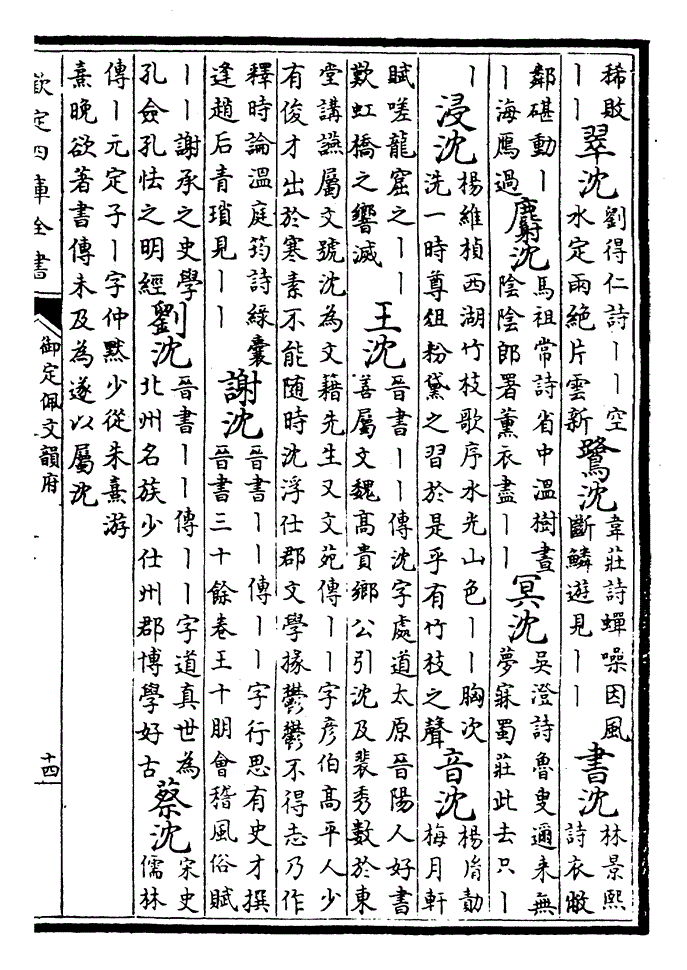 稀敗
丨丨
翠沈
劉得仁詩丨丨空
水定雨絕片雲新
鷺沈
韋莊詩蟬噪因風
斷鱗遊見丨丨
書沈
林景熙
詩衣敝
鄰碪動丨
丨海鴈過
麝沈
馬祖常詩省中溫樹晝
陰陰郎署薰衣盡丨丨
冥沈
吳澄詩魯叟邇來無
夢寐蜀莊此去只丨
丨
浸沈
楊維楨西湖竹枝歌序水光山色丨丨胸次
洗一時尊俎粉黛之習於是乎有竹枝之聲
音沈
楊
梅月軒
賦嗟龍窟之丨丨
歎虹橋之響滅
王沈
晉書丨丨傳沈字處道太原晉陽人好書
善屬文魏高貴鄉公引沈及裴秀數於東
堂講讌屬文號沈為文籍先生又文苑傳丨丨字彦伯高平人少
有俊才出於寒素不能随時沈浮仕郡文學掾鬱鬱不得志乃作
釋時論溫庭筠詩綠囊
逢趙后青瑣見丨丨
謝沈
晉書丨丨傳丨丨字行思有史才撰
晉書三十餘卷王十朋會稽風俗賦
丨丨謝承之史學
孔僉孔怯之明經
劉沈
晉書丨丨傳丨丨字道真世為
北州名族少仕州郡博學好古
蔡沈
宋史
儒林
傳丨元定子丨字仲黙少從朱熹游
熹晚欲著書傳未及為遂以屬沈
欽定四庫全書
御定佩文韻府
十四